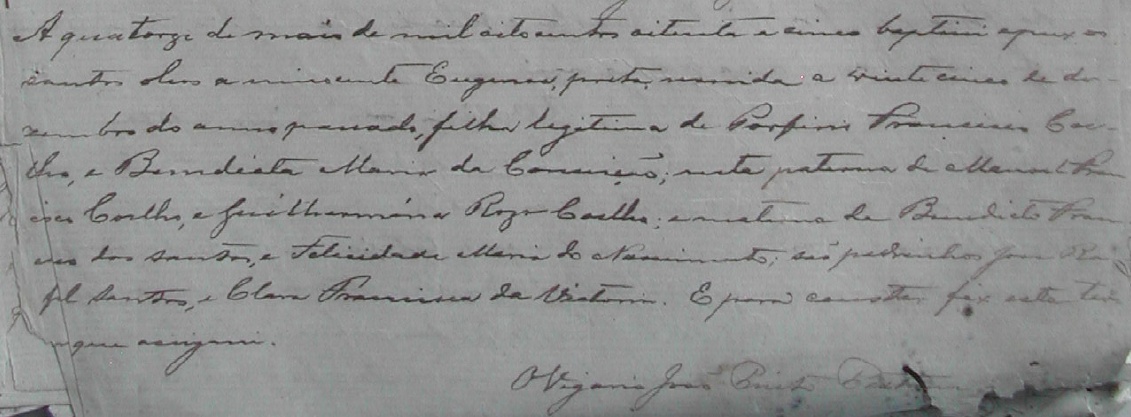 A quatorze de maio de mil oitocentos oitenta e cinco baptisei e puz os
santos oleos a innocente Eugenia, preta, nascida a vinte cinco de de-
zembro do anno passado, filha legitima de Porfirio Francisco Coe-
lho, e Benedicta Maria da Conceição; neta paterna de Manoel Fran
cisco Coelho, e Guilhermina Roza Coelho; e materna de Benedicto Fran
cisco dos Santos, e Felicidade Maria do Nascimento; são padrinhos José
Santos, e Clara Francisca da Victoria. E para constar fiz este
que assignei.
O Vigario João